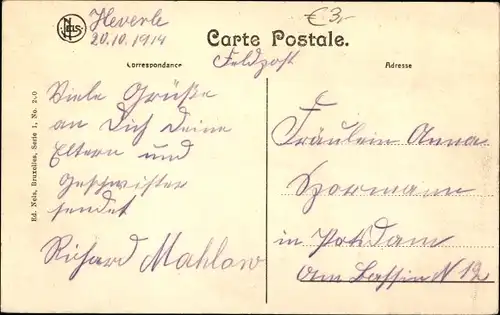 Heverle
20.10.1914
€3,-
NELS
Carte Postale.
Correspondance
Feldpost
Adresse
Ed. Nels, Bruxelles, Serie 1, No. 2
Viele Grüße
an Dich Deine
Eltern und
Geschwister
sendet
Richard Mahlow
Fräulein Anna
Spormann
in Potsdam
Am Bassin N 12